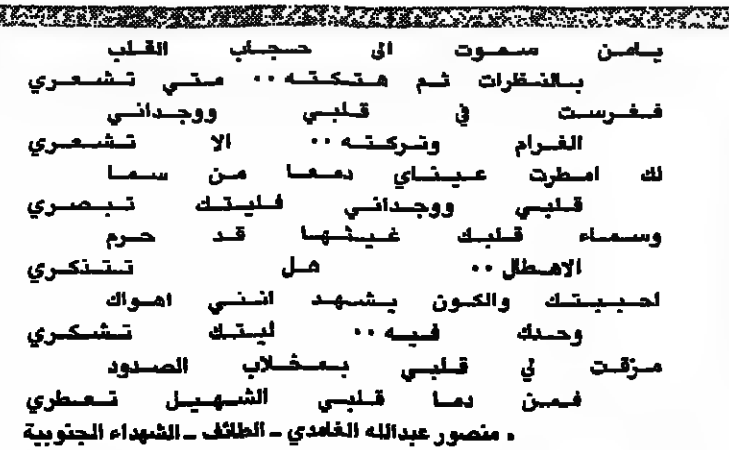 يامن سموت الى حسجاب القلب
بالنظرات ثم هتكته ٠٠ متي تشعري
فغرست في قلبي ووجداني
الغرام وتركته ٠٠ الا تشعري
لك امطرت عيناي دمعا من سما
قلبي ووجداني فليتك تبصري
وسماء قلبك غيثها قد حرم
الاهطال ٠٠ هل تتذكري
احببتك والكون يشهد انني اهواك
وحدك فيه ٠٠ ليتك تشكري
مزقت لي قلبي بمخلاب الصدود
فمن دما قلبي الشهيل تعطري
• منصور عبدالله الغامدي ـ الطائف ـ الشهداء الجنوبية